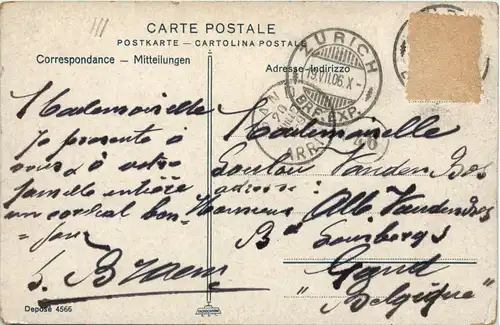 CARTE POSTALE
POSTKARTE – CARTOLINA POSTALE
Correspondance – Mitteilungen
Adresse-Indirizzo
ZURICH
19.VII.06.X-
BRF.EXP.
GAN
ARR
Mademoiselle
Je présente à
vous & à votre
famille entière
un cordial bon-
jour
S. Braem
Mademoiselle
Loulou Vanden Bos
adresse:
Monsieur Alb. Vandenbos
Bd
Gand
"Belgique"
Deposé 4566